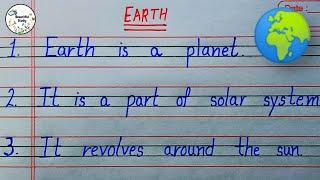 EARTH
Date :
1. Earth is a planet.
2. It is a part of solar system
3. It revolves around the sun.